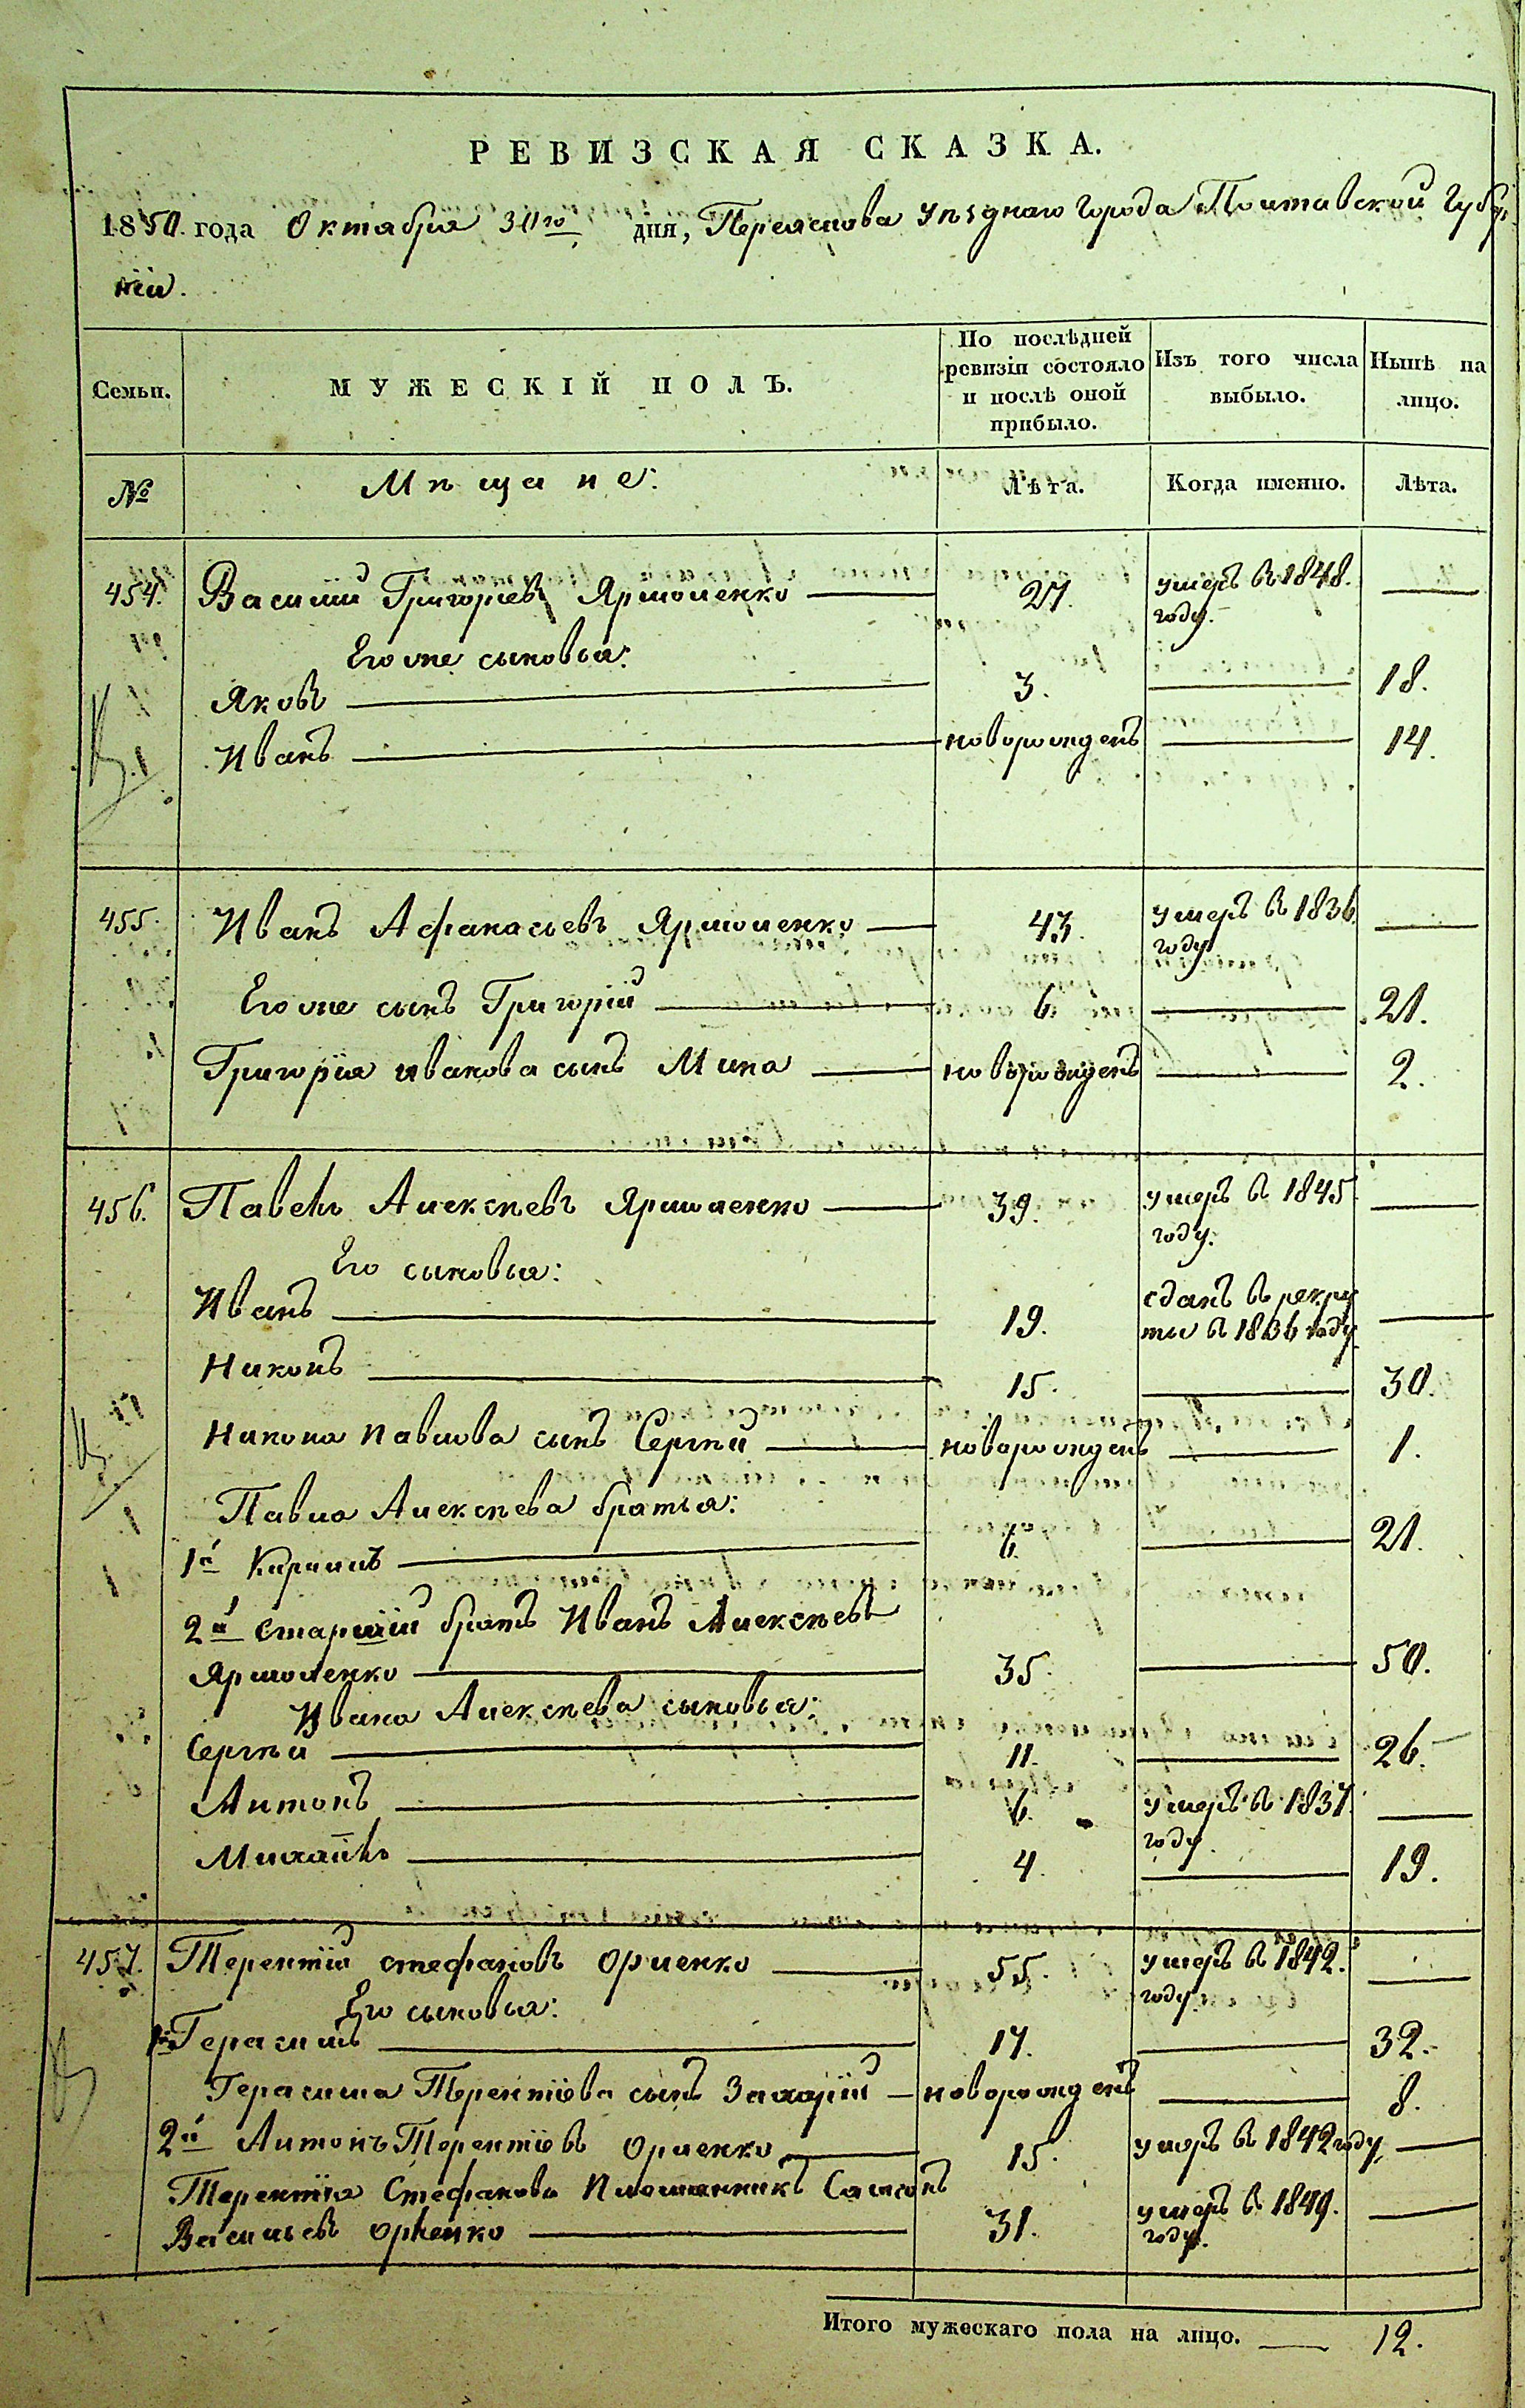 РЕВИЗСКАЯ СКАЗКА.
1850. года Октября 30го дня, Переяслова уѣзднаго города Полтавской Губер
ніи.
Семьи. МУЖЕСКІЙ ПОЛЪ. По послѣдней ревизіи состояло и послѣ оной прибыло. Изъ того числа выбыло. Нынѣ на лицо.
№ Мѣщане: Лѣта. Когда именно. Лѣта.
454. Василій Григорьевъ Ярмоленко 27. умеръ въ 1848. году.
Его же сыновья:
Яковъ 3. 18.
Иванъ новорожденъ 14.
455. Иванъ Афанасьевъ Ярмоленко 43. умеръ въ 1836 году
Его же сынъ Григорій 6. 21.
Григорія Иванова сынъ Мина новорожденъ 2.
456. Павелъ Алексѣевъ Ярмоленко 39. умеръ въ 1845 году.
Его сыновья:
Иванъ 19. сданъ въ рекруты въ 1836 году
Никонъ 15. 30.
Никона Павлова сынъ Сергѣй новорожденъ 1.
Павла Алексѣева братья:
1й Кирилъ 6. 21.
2й старшій братъ Иванъ Алексѣевъ
Ярмоленко 35. 50.
Ивана Алексѣева сыновья:
Сергѣй 11. 26.
Антонъ 6. умеръ въ 1837 году.
Михаилъ 4. 19.
457. Терентій Стефановъ Орленко 55. умеръ въ 1842. году.
Его сыновья:
1й Герасимъ 17. 32.
Герасима Терентіева сынъ Захарій новорожденъ 8.
2й Антонъ Терентіевъ Орленко 15. умеръ въ 1842 году,
Терентія Стефанова племянникъ Самсонъ
Васильевъ Орленко 31. умеръ въ 1849. году.
Итого мужескаго пола на лицо. 12.